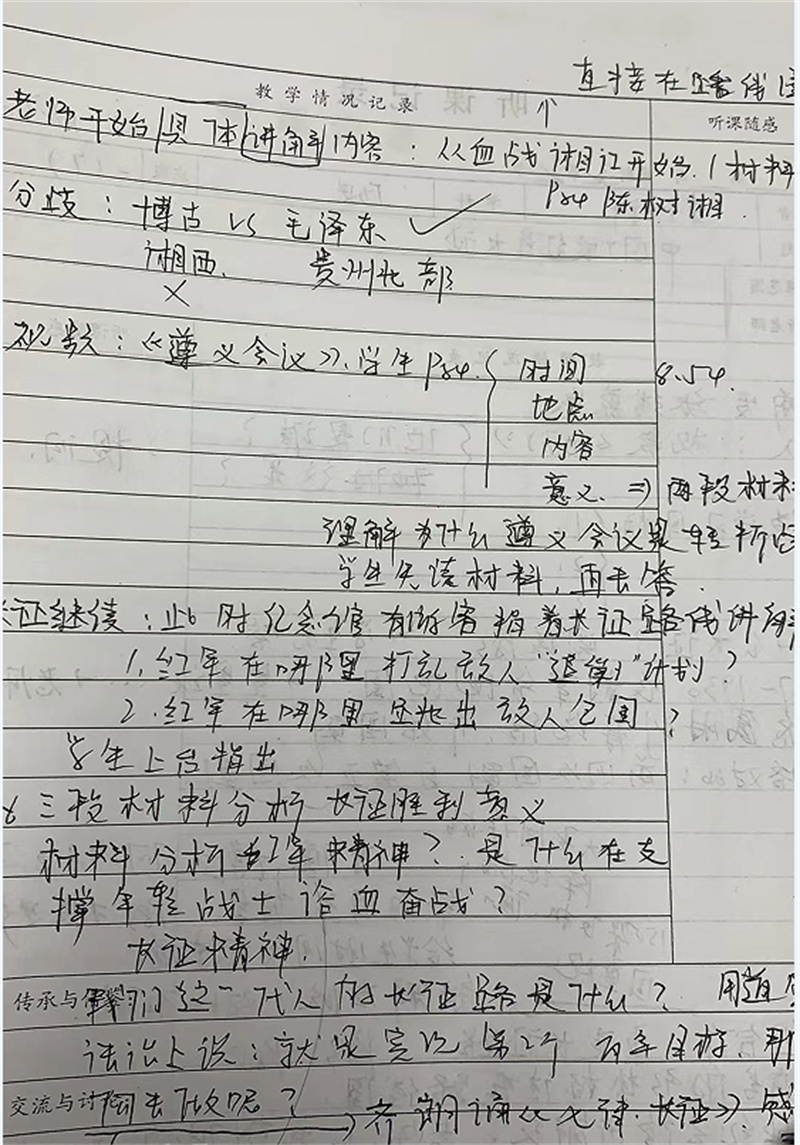 直接在路线图
教学情况记录
听课随感
老师开始具体讲解内容：从血战湘江开始.1材料
P24 陈树湘.
分歧：博古 VS 毛泽东 ✓
湘西. 贵州北部
×
视频：《遵义会议》.学生P24. 时间 8.54.
地点
内容
意义 ⇒ 两段材料
理解为什么遵义会议是转折
学生先读材料，再去答.
长征继续：此时纪念馆有游客指着长征路线讲解
1.红军在哪里打乱敌人“追剿”计划？
2.红军在哪里跳出敌人包围？
学生上台指出
三段材料分析长征胜利意义
材料分析红军精神？是什么在支
撑年轻战士浴血奋战？
长征精神.
传承与 我们这一代人的长征路是什么？用道
法治上说：就是实现第2个百年目标.那
交流与讨论 去做呢？
齐朗诵《七律·长征》.感